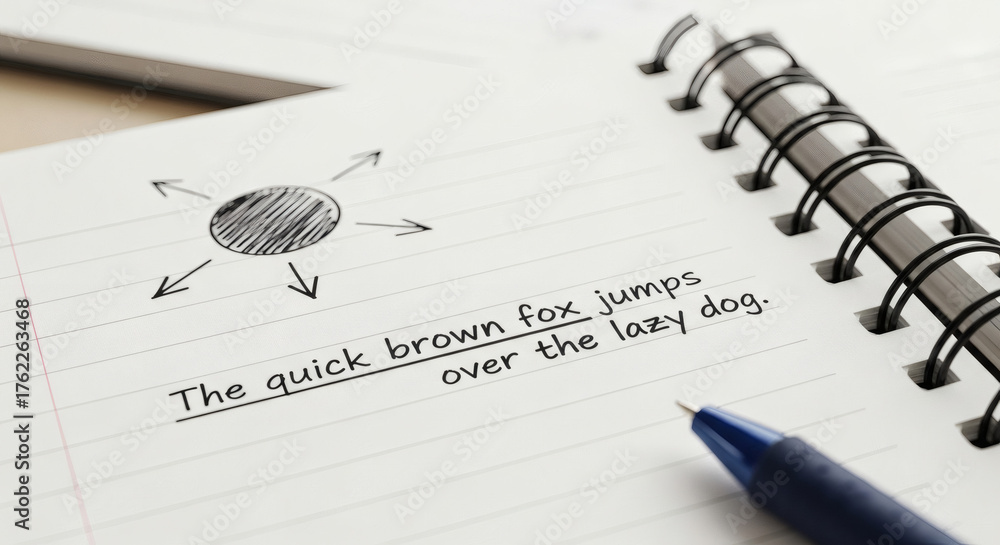 The quick brown fox jumps
over the lazy dog.
#1762263468
Adobe Stock